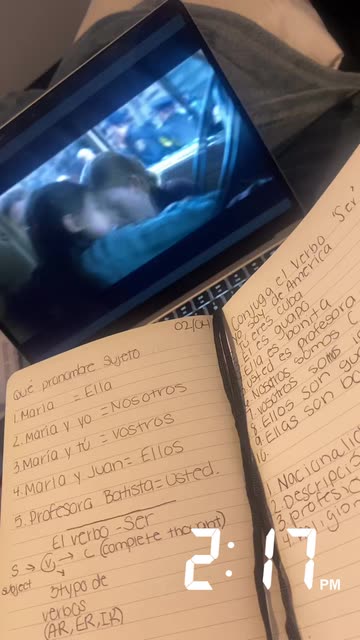 02/04
Qué pronombre sujeto
1. Maria = Ella
2. Maria y yo = Nosotros
3. María y tú = Vostros
4. Maria y Juan = Ellos
5. Profesora Batista = Usted.
El verbo - Ser
S → V → C (complete thought)
subject
3 typo de
verbos
(AR, ER, IR)
Conjuga el verbo "Ser"
soy de America
eres Cuba
El es guapo
Ella es bonita
Usted es profesora
Nosotros somos
7. vosotros somo
8. Ellos son
9. Ellas son
10.
1. Nacional
2. Descripció
3. profesi
4. religio
2:17 PM